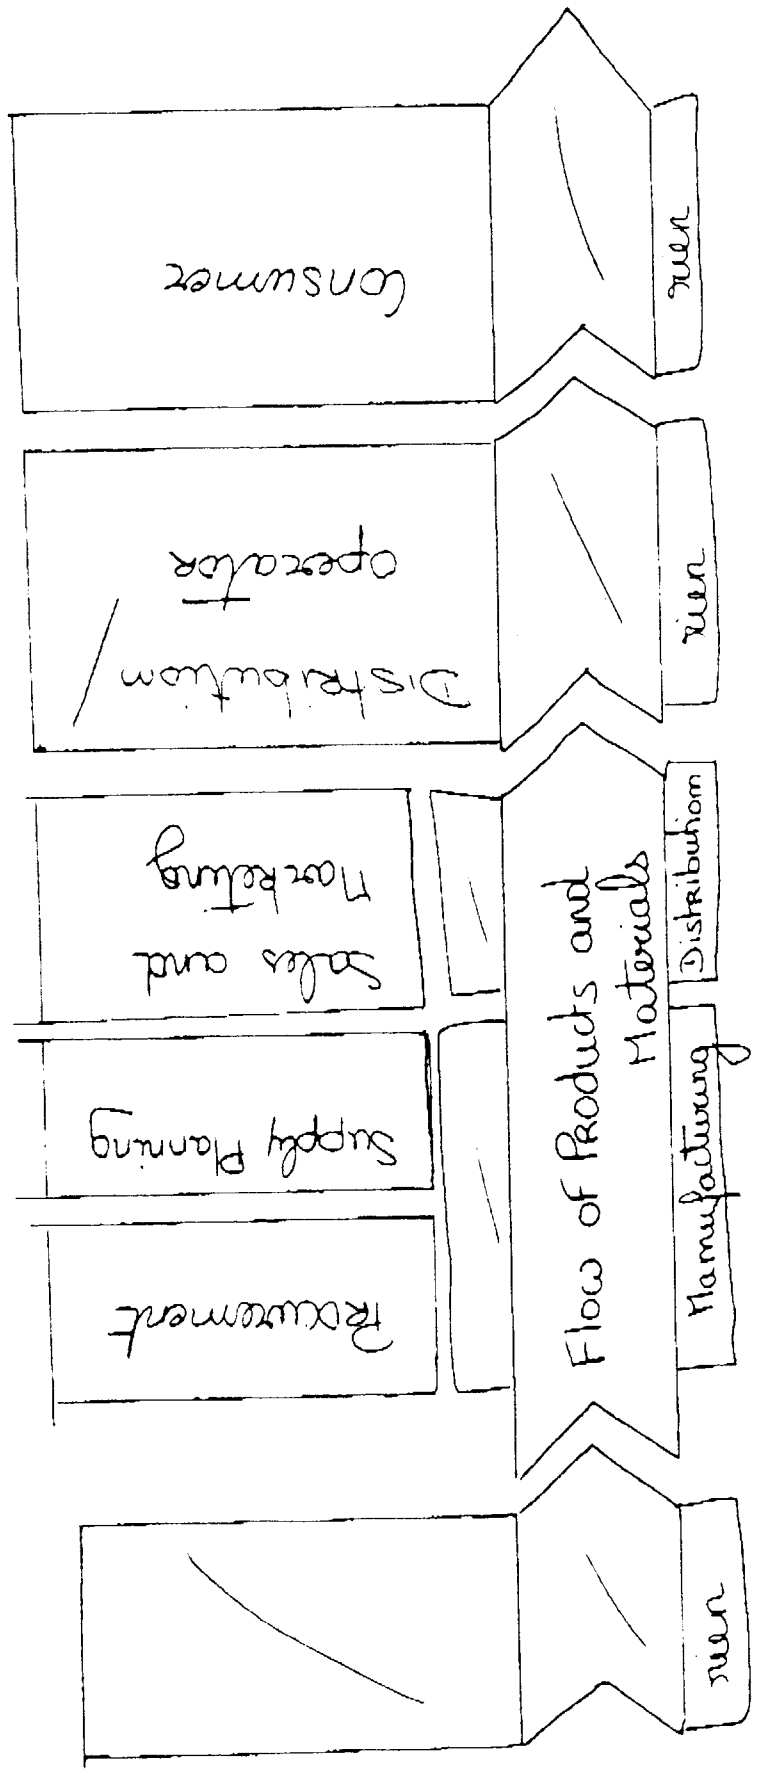 Procurement
Supply Planning
Sales and
Marketing
Distribution
operator
Consumer
Flow of Products and
Materials
rien
Manufacturing
Distribution
rien
rien